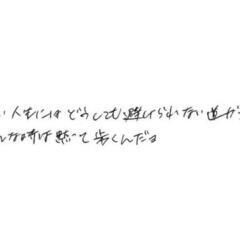 い人生にはどうしても避けられない道が
んな時は黙って歩くんだよ